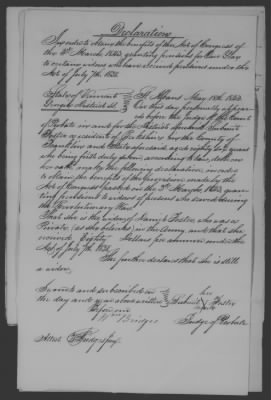 Declaration
In order to obtain the benefits of the Act of Congress of
the 3d March, 1843, granting pensions for One Year
to certain widows who have received pensions under the
Act of July 7th 1838.
State of Vermont
District St.
St Albans May 18th 1843
On this day personally appear-
ed before the Judge of the Court
of Probate in and for the District
Foster a resident of in the County of
Franklin and State aforesaid, aged eighty years
who being first duly sworn, according to law, doth on
her oath, make the following declaration, in order
to obtain the benefits of the provision made by the
Act of Congress passed on the 3d March, 1843, gran-
ting pensions to widows of persons who served during
the Revolutionary War.
That she is the widow of Foster, who was a
Private, (as she believes) in the Army, and that she
received Eighty Dollars per annum under the
Act of July 7th 1838.
She further declares that she is still
a widow.
Sworn to and subscribed on
the day and year above written
Before me
her
Foster
mark
Wm Bridges
Judge of Probate
Attest